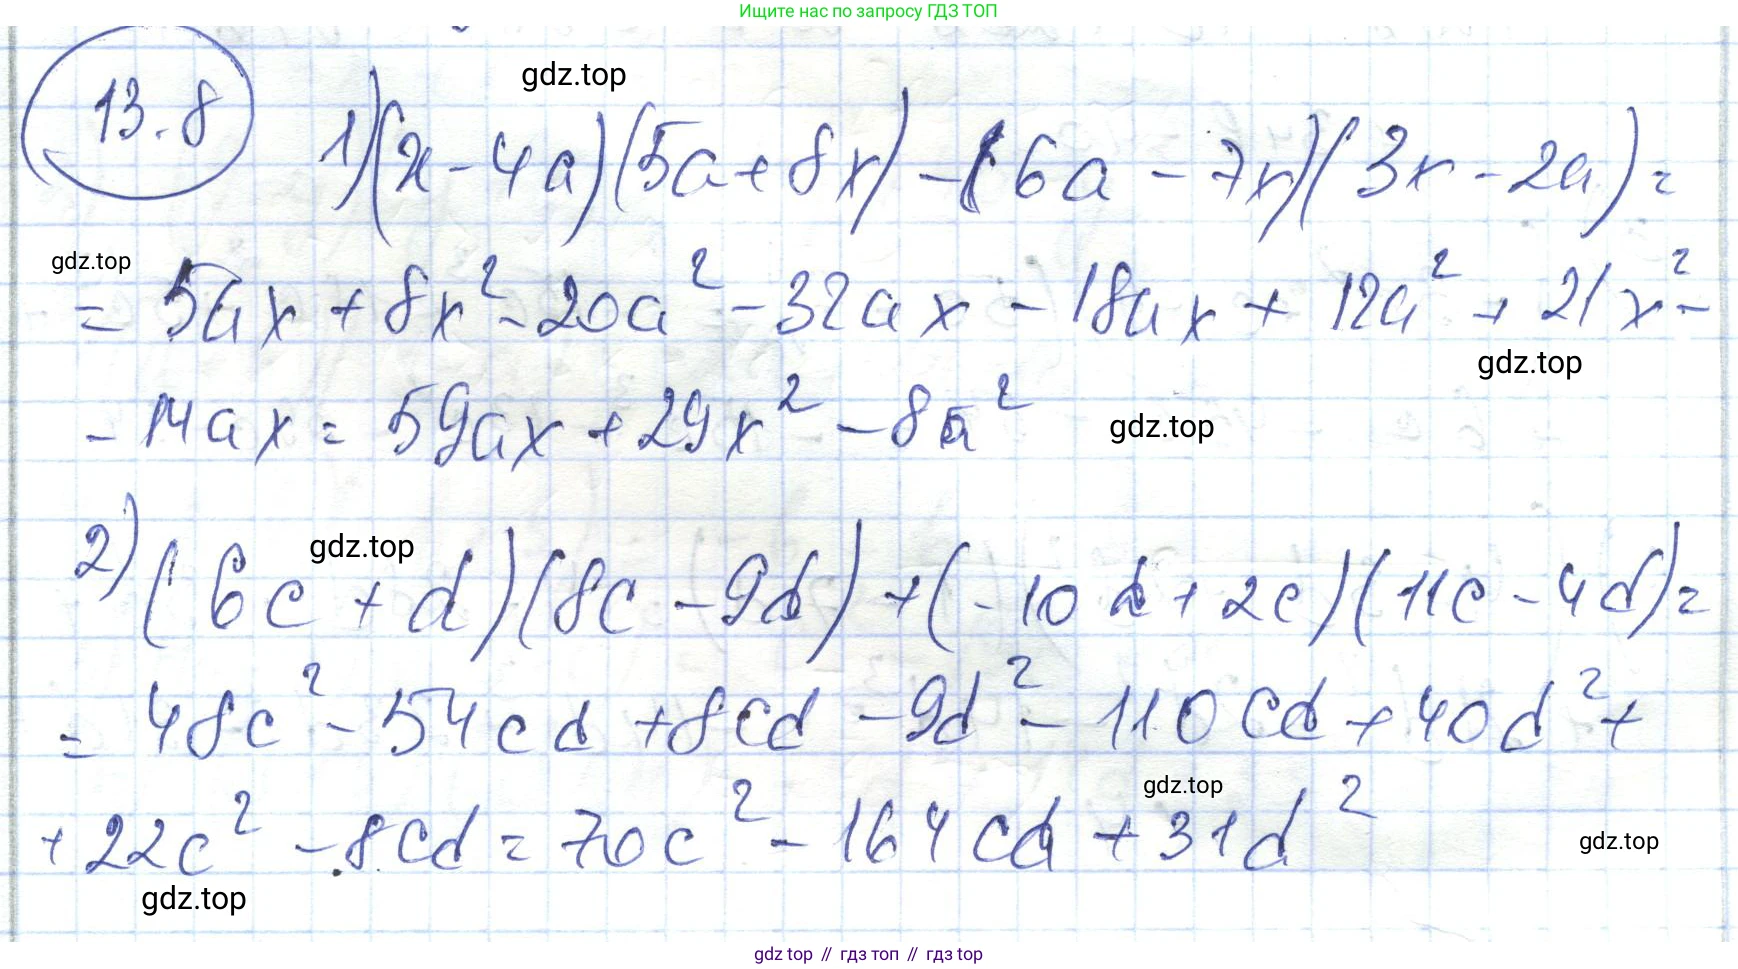 Ищите нас по запросу ГДЗ ТОП
gdz.top
13.8
1) (x - 4a)(5a + 8x) - (6a - 7x)(3x - 2a) =
gdz.top
= 5ax + 8x² - 20a² - 32ax - 18ax + 12a² + 21x² -
gdz.top
- 14ax = 59ax + 29x² - 8a²
gdz.top
gdz.top
2) (6c + d)(8c - 9d) + (-10d + 2c)(11c - 4d) =
= 48c² - 54cd + 8cd - 9d² - 110cd + 40d² +
gdz.top
+ 22c² - 8cd = 70c² - 164cd + 31d²
gdz.top
gdz.top
gdz top // гдз топ // гдз top